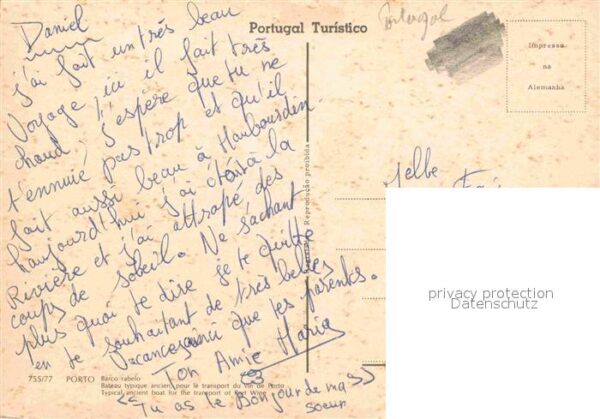 Daniel
J'ai fait un très beau
Voyage, ici il fait très
chaud, J'espère que tu ne
t'ennuie pas trop et qu'il
fait aussi beau à Haubourdin
haujourd'hui j'ai était à la
Rivière et j'ai attrapé, des
coups de soleil. Ne sachant
plus quoi te dire je te quitte
en te souhaitant de très belles
vacances ainsi que tes parents.
Ton Amie Maria
<<Tu as le Bonjour de ma >>
soeur
755/77 PORTO Barco rabelo
Bateau typique ancien, pour le transport du Vin de Porto
Typical ancient boat for the transport of Port Wine
Portugal Turístico
Reprodução proibida
Portugal
Impresso
na
Alemanha
Melle
privacy protection
Datenschutz